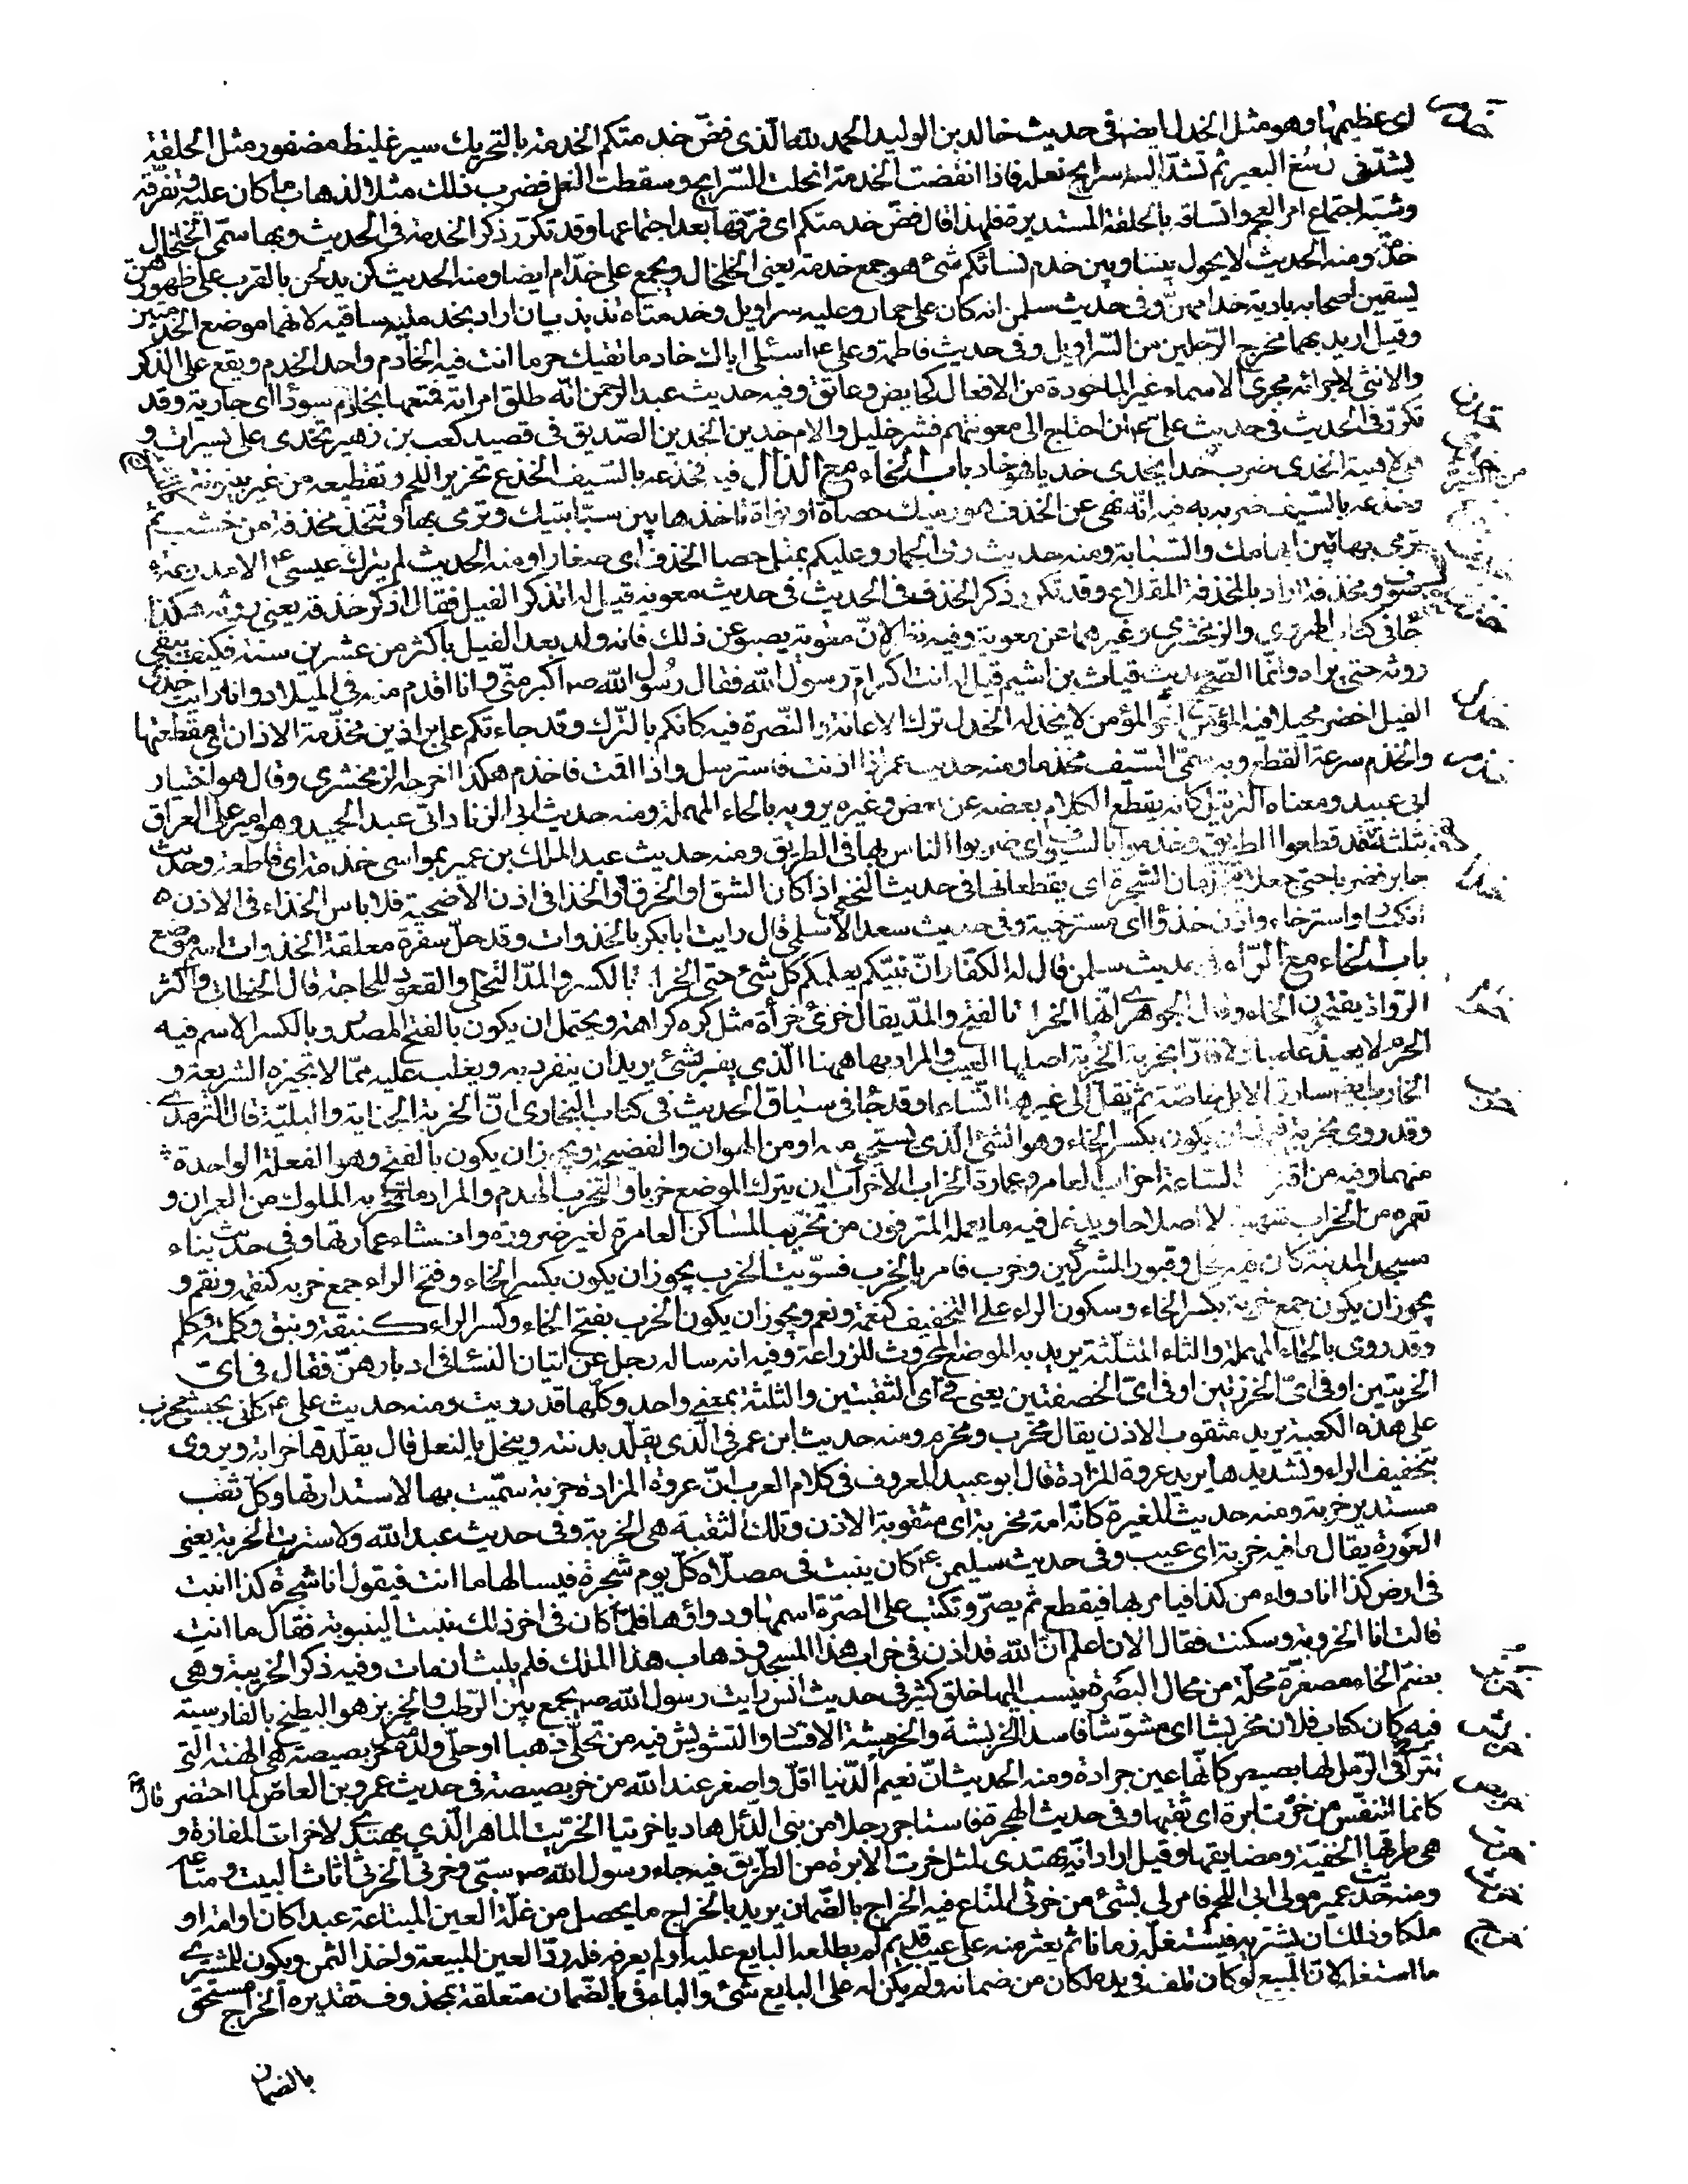 اى عظيمها وهو مثل الخدل ايضا فى حديث خالد بن الوليد الحمد لله الّذى فضّ خدمتكم الخدمة بالتحريك سير غليظ مضفور مثل الحلقة
خدم
يشدّ فى رسغ البعير ثم تشدّ اليه سرايح نعله فاذا انفضت الخدمة انحلت السّرايح وسقطت النعل فضرب ذلك مثلا لذهاب ما كان عليه وتفرّقه
وشبّه اجتماع امر العجم واتساقه بالحلقة المستديرة فلهذا قال فضّ خدمتكم اى فرّقها بعد اجتماعها وقد تكرّر ذكر الخدمة فى الحديث وبها سمّى الخلخال
خدمة ومنه الحديث لا يحول بيننا وبين خدم نسائكم شئ هو جمع خدمة يعنى الخلخال ويجمع على خدام ايضا ومنه الحديث كن يدلحن بالقرب على ظهورهن
يسقين اصحابه بادية خدامهنّ وفى حديث سلمن انه كان على حمار وعليه سراويل وخدمتاه تذبذبان اراد بخدمتيه ساقيه لانهما موضع الخدمتين
وقيل اريد بهما مخرج الرّجلين من السّراويل وفى حديث فاطمة وعلى ع اسئلى اباك خادما تقيك حر ما انت فيه الخادم واحد الخدم ويقع على الذكر
والانثى لاجرائه مجرى الاسماء غير الماخوذة من الافعال كحايض وعاتق وفيه حديث عبد الرحمن انّه طلق امراته فمتعها بخادم سوداء اى جارية وقد
تكرّر فى الحديث فى حديث على ع ان احتاج الى معونتهم فشر خليل والام خدين الخدين الصّديق فى قصيد كعب بن زهير تخدى على يسرات و
خدن
هى لاهية الخدى ضرب من السير خدا يخدى خديا فهو خاد باب الخاء مع الذال فيه فخذعه بالسّيف الخذع تحزيز اللحم وتقطيعه من غير بينونة
وخذعه بالسّيف ضربه به فيه انّه نهى عن الخذف هو رميك حصاة او نواة تاخذها بين سبّابتيك وترمى بها او تتخذ مخذفة من خشب ثم
ترمى بها بين ابهامك والسّبابة ومنه حديث رمى الجمار وعليكم بمثل حصا الخذف اى صغارا ومنه الحديث لم يترك عيسى ع الا مدرعة
صوف ومخذفة اراد بالمخذفة المقلاع وقد تكرر ذكر الخذف فى الحديث فى حديث معوية قيل له اتذكر الفيل فقال اذكر خذقه يعنى روثه هكذا
جاء فى كتاب الهروى والزمخشرى وغيرهما عن معوية وفيه نظر لانّ معوية يصبو عن ذلك فانه ولد بعد الفيل باكثر من عشرين سنة فكيف يبقى
روثه حتى يراه وانّما الصّحيح حديث قباث بن اشيم قيل له انت اكبر ام رسول الله فقال رسول الله ص اكبر منّى وانا اقدم منه فى الميلاد وانا رايت خذق
الفيل اخضر محيلا فيه المؤمن اخو المؤمن لا يخذله الخذل ترك الاعانة والنّصرة فيه كانكم بالتّرك وقد جاءتكم على براذين مخذّمة الاذان اى مقطعتها
خذل
والخذم سرعة القطع وبه سمّى السّيف مخذما ومنه حديث عمر اذا اذنت فاسترسل واذا اقمت فاخذم هكذا اخرجه الزمخشرى وقال هو اختيار
خذم
ابى عبيد ومعناه الترتيل كانه يقطع الكلام بعضه عن بعض وغيره يرويه بالحاء المهملة ومنه حديث ابى الزناد اتى عبد الحميد وهو امير على العراق
بثلثة نفر قد قطعوا الطريق وخذموا بالسّيوف اى ضربوا الناس بها فى الطريق ومنه حديث عبد الملك بن عمير بمواسى خذمة اى قاطعة وحديث
جابر فضربا حتى جعلا يتخذّمان الشجرة اى يقطعانها فى حديث النخعى اذا كان الشق او الخرق او الخذا فى اذن الاضحية فلا باس الخذاء فى الاذن
انكسار واسترخاء واذن خذواء اى مسترخية وفى حديث سعد الاسلمى قال رايت ابابكر بالخذوات وقد حلّ سفرة معلقة الخذوات اسم موضع
باب الخاء مع الرّاء فى حديث سلمن قال له الكفّار انّ نبيّكم يعلمكم كلّ شئ حتى الخراءة بالكسر والمدّ التخلى والقعود للحاجة قال الخطابى واكثر
الرّواة يفتحون الخاء وقال الجوهرى انّها الخراءة بالفتح والمدّ يقال خرئ خرأة مثل كره كراهة ويحتمل ان يكون بالفتح المصدر وبالكسر الاسم فيه
الحرم لا يعيذ عاصيا ولا فارّا بخربة الخربة اصلها العيب والمراد بها ههنا الّذى يفرّ بشئ يريد ان ينفرد به ويغلب عليه ممّا لا تجيزه الشريعة و
الخارب ايضا سارق الابل خاصّة ثم نقل الى غيرها اتّساعا وقد جاء فى سياق الحديث فى كتاب البخارى انّ الخربة الجناية والبلية قال الترمذى
خرب
وقد روى بخربة فيجوز ان يكون بكسر الخاء وهو الشئ الّذى يستحيى منه او من الهوان والفضيحة ويجوز ان يكون بالفتح وهو الفعلة الواحدة
منهما وفيه من اقتراب السّاعة اخراب العامر وعمارة الخراب الاخراب ان يترك الموضع خربا والتخريب الهدم والمراد ما يخربه الملوك من العمران و
تعمره من الخراب شهوة لا اصلاحا ويدخل فيه ما يعمله المترفون من تخريب المساكن العامرة لغير ضرورة وانشاء عمارتها وفى حديث بناء
مسجد المدينة كان فيه نخل وقبور المشركين وخرب فامر بالخرب فسوّيت الخرب يجوز ان يكون بكسر الخاء وفتح الراء جمع خربة كنقمة ونقم و
يجوز ان يكون جمع خربة بكسر الخاء وسكون الراء على التخفيف كنعمة ونعم ويجوز ان يكون الخرب بفتح الخاء وكسر الراء كنبقة ونبق وكلمة وكلم
وقد روى بالحاء المهملة والثاء المثلّثة يريد به الموضع المحروث للزراعة وفيه انه ساله رجل عن اتيان النساء فى ادبارهنّ فقال فى اىّ
الخربتين او فى اىّ الخرزتين او فى اىّ الخصفتين يعنى فى اى الثقبتين والثلثة بمعنى واحد وكلّها قد رويت ومنه حديث على ع كانى بحبشى مخرب
على هذه الكعبة يريد مثقوب الاذن يقال مخرب ومخرم ومنه حديث ابن عمر فى الّذى يقلّد بدنته ويبخل بالنعل قال يقلّدها خرابة ويروى
بتخفيف الراء وتشديدها يريد عروة المزادة قال ابو عبيد المعروف فى كلام العرب انّ عروة المزادة خربة سمّيت بها لاستدارتها وكلّ ثقب
مستدير خربة ومنه حديث المغيرة كانّه امة مخربة اى مثقوبة الاذن وتلك الثقبة هى الخربة وفى حديث عبد الله ولا سترت الخربة يعنى
العورة يقال ما فيه خربة اى عيب وفى حديث سليمن ع كان ينبت فى مصلّاه كلّ يوم شجرة فيسالها ما انت فيقول انا شجرة كذا انبت
فى ارض كذا انا دواء من كذا فيامر بها فيقطع ثم يصرّ وتكتب على الصّرة اسمها ودوائها فلمّا كان فى اخر ذلك نبتت الينبوتة فقال ما انت
قالت انا الخروبة وسكنت فقال الان اعلم انّ الله قد اذن فى خراب هذا المسجد وذهاب هذا الملك فلم يلبث ان مات وفيه ذكر الخريبة وهى
بضمّ الخاء مصغّرة محلّة من محال البصرة ينسب اليها خلق كثير فى حديث انس رايت رسول الله ص يجمع بين الرّطب والخربز هو البطيخ بالفارسية
خربز
فيه كان كتاب فلان مخربشا اى مشوّشا فاسدا الخربشة والخرمشة الافساد والتشويش فيه من تحلّى ذهبا او حلّى ولده مثل خربصيصة هى الهنة التى
تتراى فى الرّمل لها بصيص كانّها عين جرادة ومنه الحديث انّ نعيم الدّنيا اقلّ واصغر عند الله من خربصيصة فى حديث عمرو بن العاص لما احتضر قال
كانما اتنفّس من خرت ابرة اى ثقبها وفى حديث الهجرة فاستاجر رجلا من بنى الدّئل هاديا خرّيتا الخرّيت الماهر الّذى يهتدى لاخرات المفازة و
هى طرقها الخفيّة ومضايقها وقيل اراد انّه يهتدى لمثل خرت الابرة من الطّريق فيه جاء رسول الله ص سبّى وخرثى الخرثى اثاث البيت ومتاعه
خرت
ومنه حديث عمير مولى ابى اللحم فامر لى بشئ من خرثى المتاع فيه الخراج بالضّمان يريد بالخراج ما يحصل من غلّة العين المبتاعة عبدا كان او امة او
خرث
ملكا وذلك ان يشتريه فيستغلّه زمانا ثم يعثر منه على عيب قديم لم يطلعه البايع عليه او لم يعرفه فله ردّ العين المبيعة واخذ الثمن ويكون للمشترى
خرج
ما استغله لانّ المبيع لو كان تلف فى يده لكان من ضمانه ولم يكن له على البايع شئ والباء فى بالضّمان متعلقة بمحذوف تقديره الخراج مستحق
بالضمان